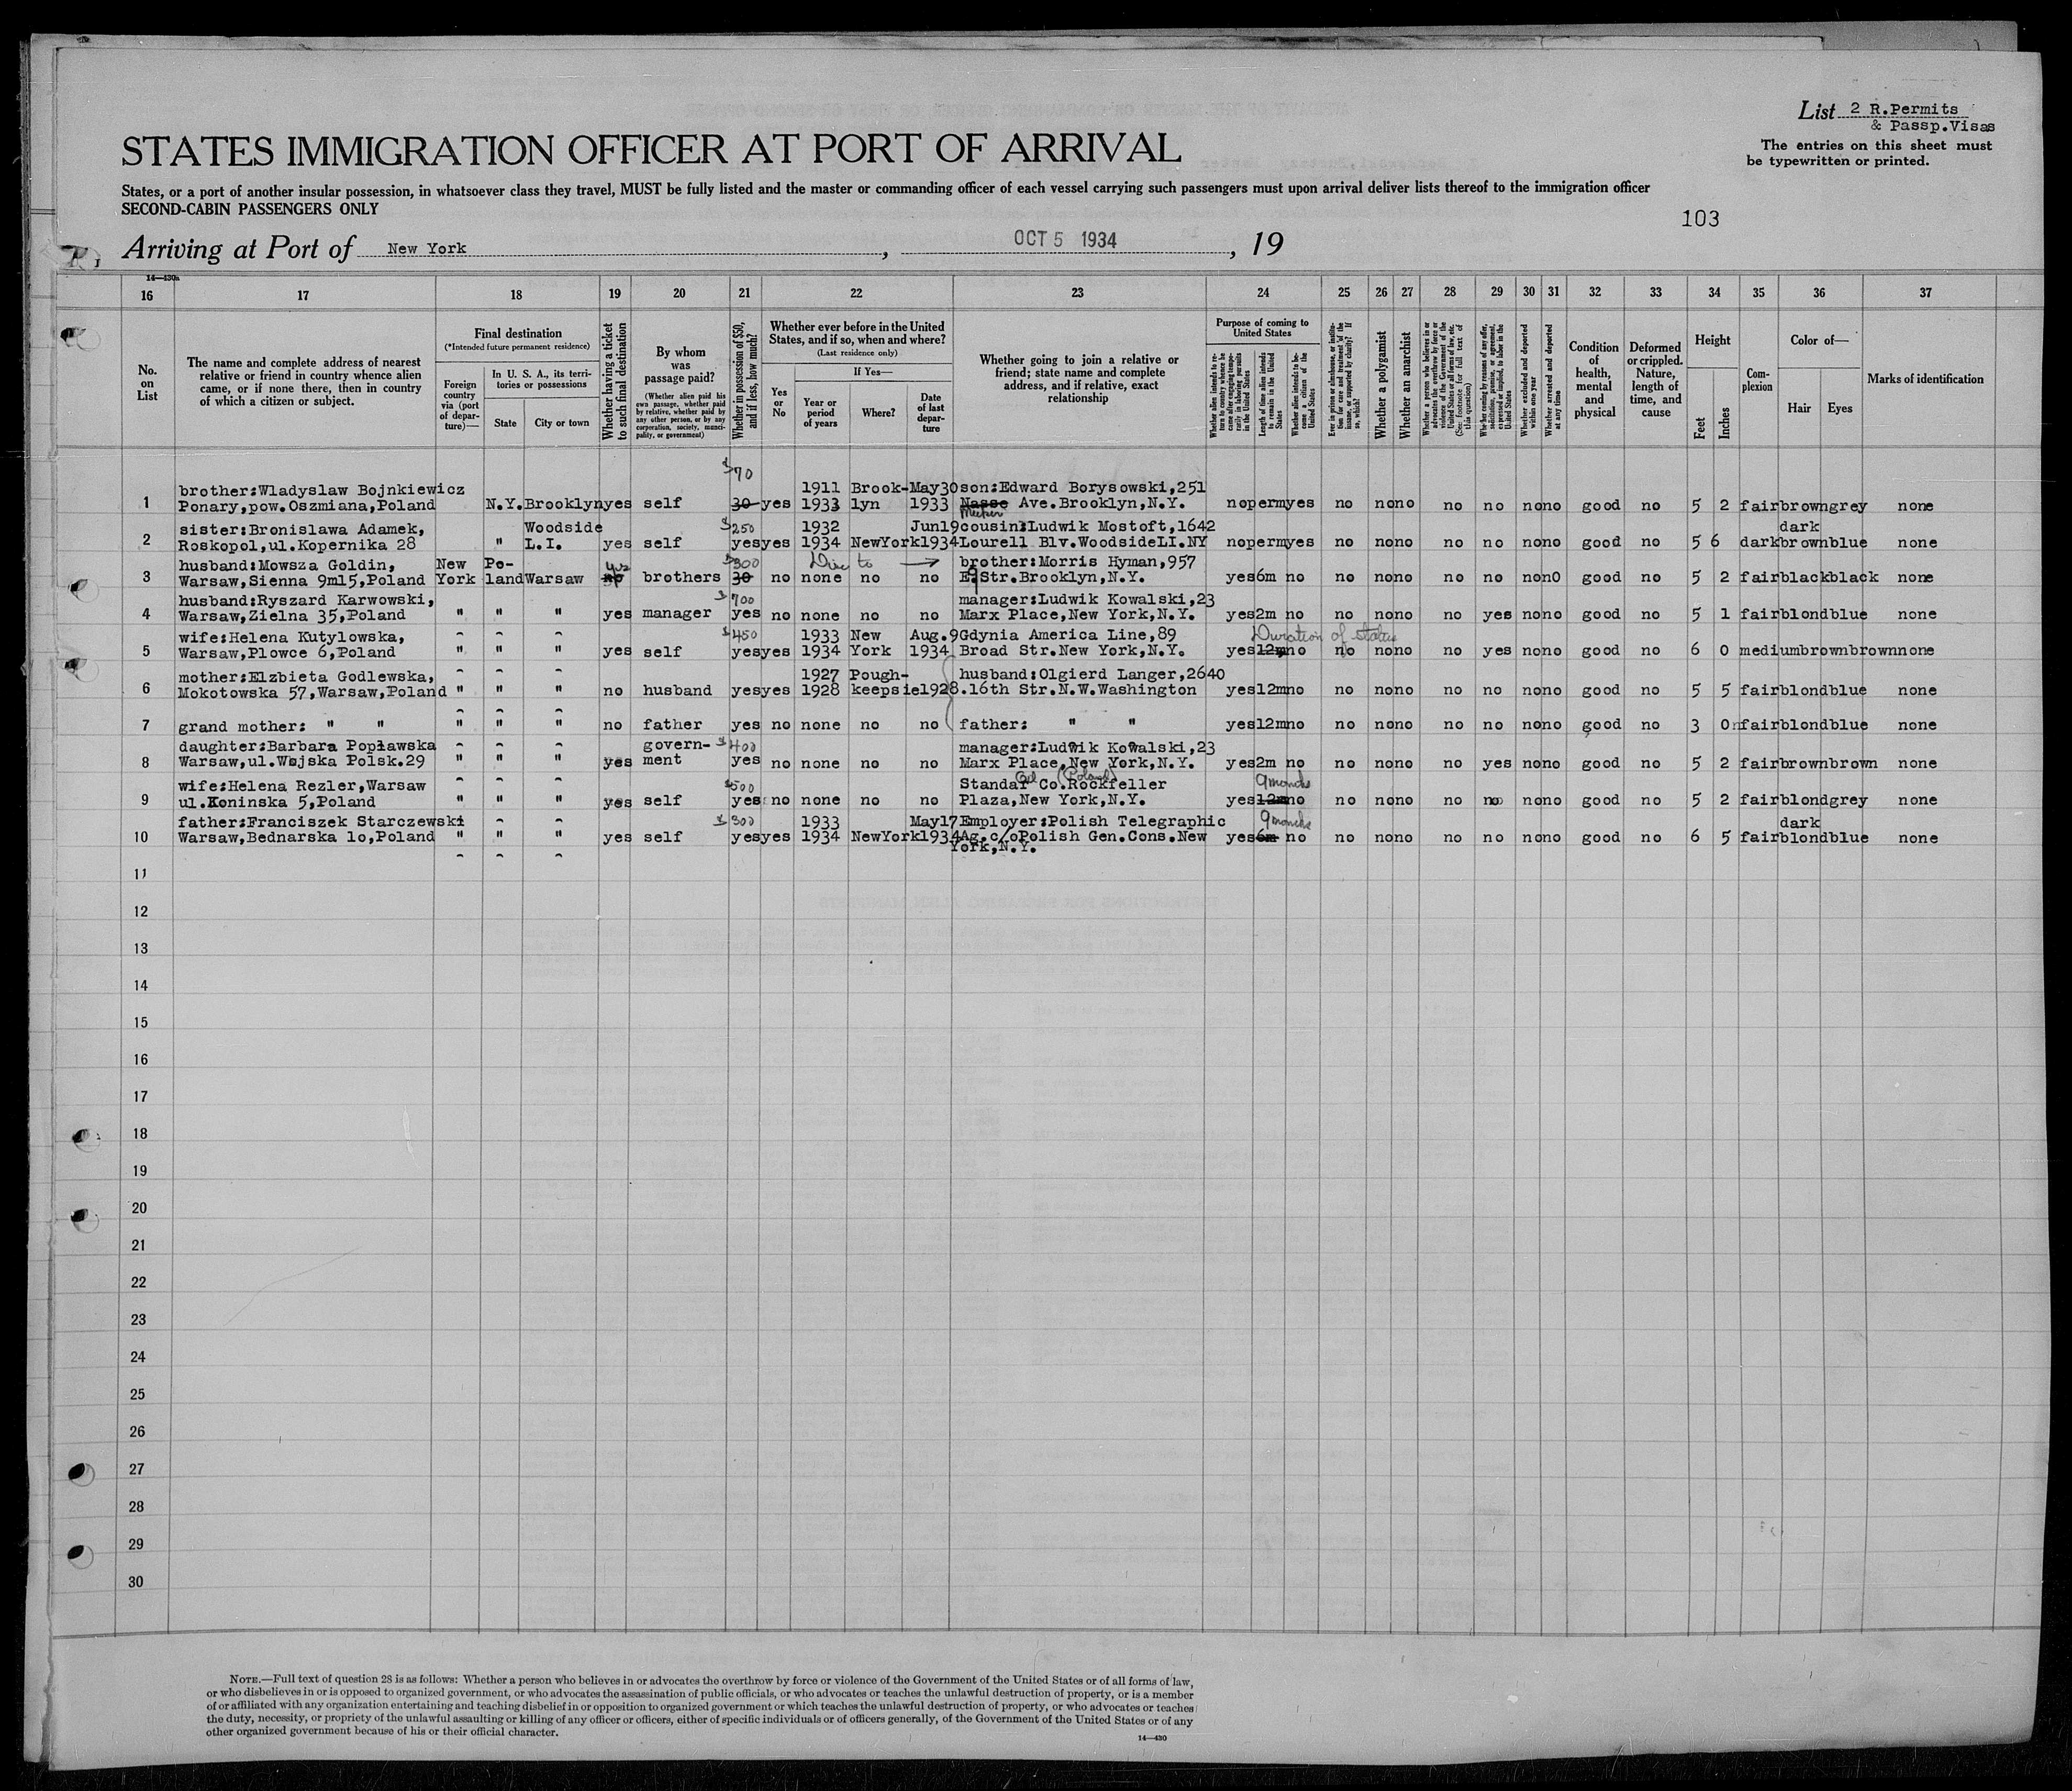 List 2 R.Permits
& Passp.Visas
The entries on this sheet must
be typewritten or printed.
STATES IMMIGRATION OFFICER AT PORT OF ARRIVAL
States, or a port of another insular possession, in whatsoever class they travel, MUST be fully listed and the master or commanding officer of each vessel carrying such passengers must upon arrival deliver lists thereof to the immigration officer
SECOND-CABIN PASSENGERS ONLY
103
Arriving at Port of New York, OCT 5 1934, 19
14—430a
16 17 18 19 20 21 22 23 24 25 26 27 28 29 30 31 32 33 34 35 36 37
No. on List
The name and complete address of nearest
relative or friend in country whence alien
came, or if none there, then in country
of which a citizen or subject.
Final destination
(*Intended future permanent residence)
Foreign country via (port of departure)—
In U. S. A., its territories or possessions
State
City or town
Whether having a ticket to such final destination
By whom was passage paid?
(Whether alien paid his own passage, whether paid by relative, whether paid by any other person, or by any corporation, society, municipality, or government)
Whether in possession of $50, and if less, how much?
Whether ever before in the United
States, and if so, when and where?
(Last residence only)
Yes or No
If Yes—
Year or period of years
Where?
Date of last departure
Whether going to join a relative or
friend; state name and complete
address, and if relative, exact
relationship
Purpose of coming to United States
Whether alien intends to return to country whence he came after engaging temporarily in laboring pursuits in the United States
Length of time alien intends to remain in the United States
Whether alien intends to become a citizen of the United States
Ever in prison or almshouse, or institution for care and treatment of the insane, or supported by charity? If so, which?
Whether a polygamist
Whether an anarchist
Whether a person who believes in or advocates the overthrow by force or violence of the Government of the United States or all forms of law, etc. (See footnote for full text of this question)
Whether coming by reasons of any offer, solicitation, promise, or agreement, expressed or implied, to labor in the United States
Whether excluded and deported within one year
Whether arrested and deported at any time
Condition of health, mental and physical
Deformed or crippled. Nature, length of time, and cause
Height
Feet
Inches
Complexion
Color of—
Hair
Eyes
Marks of identification
$70
brother:Wladyslaw Bojnkiewicz 1911 Brook- May30 son:Edward Borysowski,251
1 Ponary,pow.Oszmiana,Poland N.Y. Brooklyn yes self 30 yes 1933 lyn 1933 Nasse Ave.Brooklyn,N.Y. no perm yes no no no no no no no good no 5 2 fair brown grey none
sister:Bronislawa Adamek, Woodside $250 1932 Jun19 cousin:Ludwik Mostoft,1642 dark
2 Roskopol,ul.Kopernika 28 " L.I. yes self yes yes 1934 NewYork 1934 Lourell Blv.WoodsideLI.NY no perm yes no no no no no no no good no 5 6 dark brown blue none
husband:Mowsza Goldin, New Po- yes $300 brother:Morris Hyman,957
3 Warsaw,Sienna 9ml5,Poland York land Warsaw no brothers 30 no none no no E 9 Str.Brooklyn,N.Y. yes 6m no no no no no no no n0 good no 5 2 fair black black none
husband:Ryszard Karwowski, $700 manager:Ludwik Kowalski,23
4 Warsaw,Zielna 35,Poland " " " yes manager yes no none no no Marx Place,New York,N.Y. yes 2m no no no no no yes no no good no 5 1 fair blond blue none
wife:Helena Kutylowska, $450 1933 New Aug.9 Gdynia America Line,89 Duration of status
5 Warsaw,Plowce 6,Poland " " " yes self yes yes 1934 York 1934 Broad Str.New York,N.Y. yes 12m no no no no no yes no no good no 6 0 medium brown brown none
mother:Elzbieta Godlewska, 1927 Pough- husband:Olgierd Langer,2640
6 Mokotowska 57,Warsaw,Poland " " " no husband yes yes 1928 keepsie 1928 .16th Str.N.W.Washington yes 12m no no no no no no no no good no 5 5 fair blond blue none
7 grand mother: " " " " " no father yes no none no no father: " " yes 12m no no no no no no no no good no 3 0 fair blond blue none
daughter:Barbara Popławska govern- $400 manager:Ludwik Kowalski,23
8 Warsaw,ul.Wojska Polsk.29 " " " yes ment yes no none no no Marx Place,New York,N.Y. yes 2m no no no no no yes no no good no 5 2 fair brown brown none
wife:Helena Rezler,Warsaw $500 Standar Oil Co.(Poland) Rockfeller 9 months
9 ul.Koninska 5,Poland " " " yes self yes no none no no Plaza,New York,N.Y. yes 12m no no no no no no no no good no 5 2 fair blond grey none
father:Franciszek Starczewski $300 1933 May17 Employer:Polish Telegraphic 9 months dark
10 Warsaw,Bednarska lo,Poland " " " yes self yes yes 1934 NewYork 1934 Ag.c/oPolish Gen.Cons.New yes 6m no no no no no no no no good no 6 5 fair blond blue none
York,N.Y.
11
12
13
14
15
16
17
18
19
20
21
22
23
24
25
26
27
28
29
30
NOTE.—Full text of question 28 is as follows: Whether a person who believes in or advocates the overthrow by force or violence of the Government of the United States or of all forms of law,
or who disbelieves in or is opposed to organized government, or who advocates the assassination of public officials, or who advocates or teaches the unlawful destruction of property, or is a member
of or affiliated with any organization entertaining and teaching disbelief in or opposition to organized government or which teaches the unlawful destruction of property, or who advocates or teaches
the duty, necessity, or propriety of the unlawful assaulting or killing of any officer or officers, either of specific individuals or of officers generally, of the Government of the United States or of any
other organized government because of his or their official character.
14—430